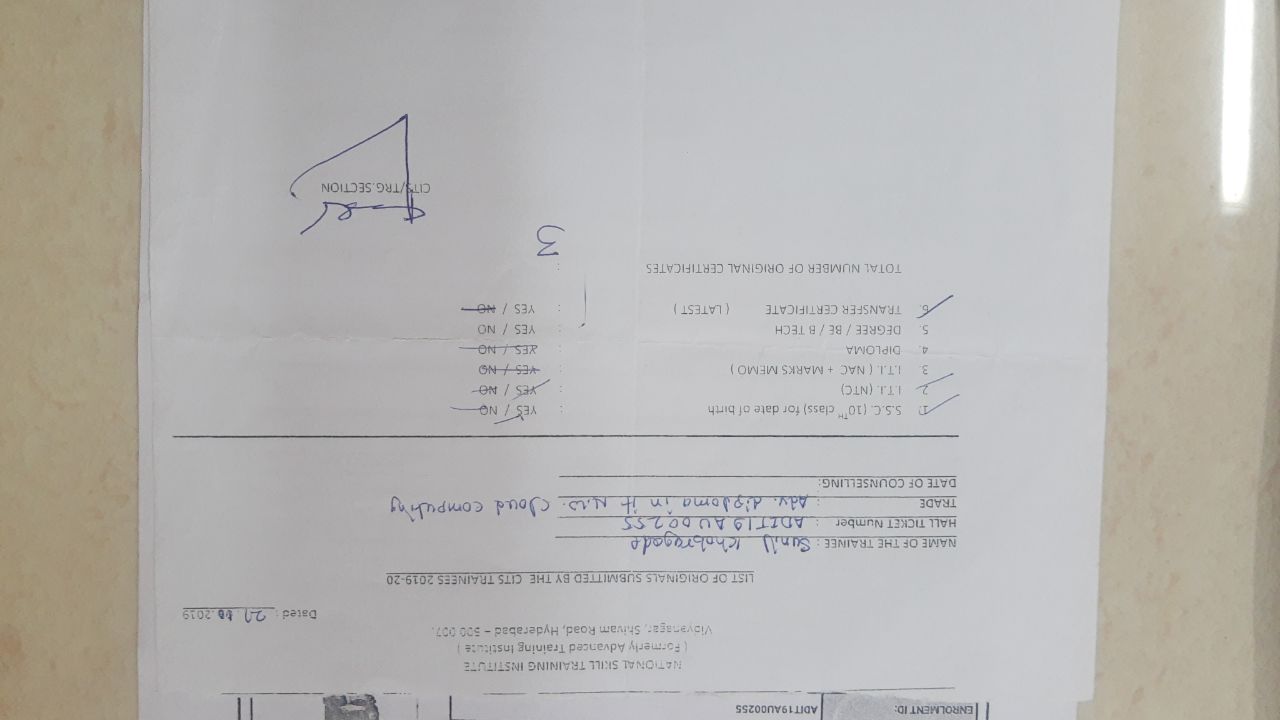 ENROLMENT ID: ADIT19AU00255
NATIONAL SKILL TRAINING INSTITUTE
( Formerly Advanced Training Institute )
Vidyanagar, Shivam Road, Hyderabad – 500 007.
Dated : .2019
LIST OF ORIGINALS SUBMITTED BY THE CITS TRAINEES 2019-20
NAME OF THE TRAINEE : Sunill Khobragade
HALL TICKET Number : ADIT19AU00255
TRADE : Adv. diploma in it N.W. Cloud computing
DATE OF COUNSELLING:
1. S.S.C. (10TH class) for date of birth : YES / NO
2. I.T.I. (NTC) : YES / NO
3. I.T.I. ( NAC + MARKS MEMO ) : YES / NO
4. DIPLOMA : YES / NO
5. DEGREE / BE / B TECH : YES / NO
6. TRANSFER CERTIFICATE ( LATEST ) : YES / NO
TOTAL NUMBER OF ORIGINAL CERTIFICATES : 3
CITS/TRG.SECTION